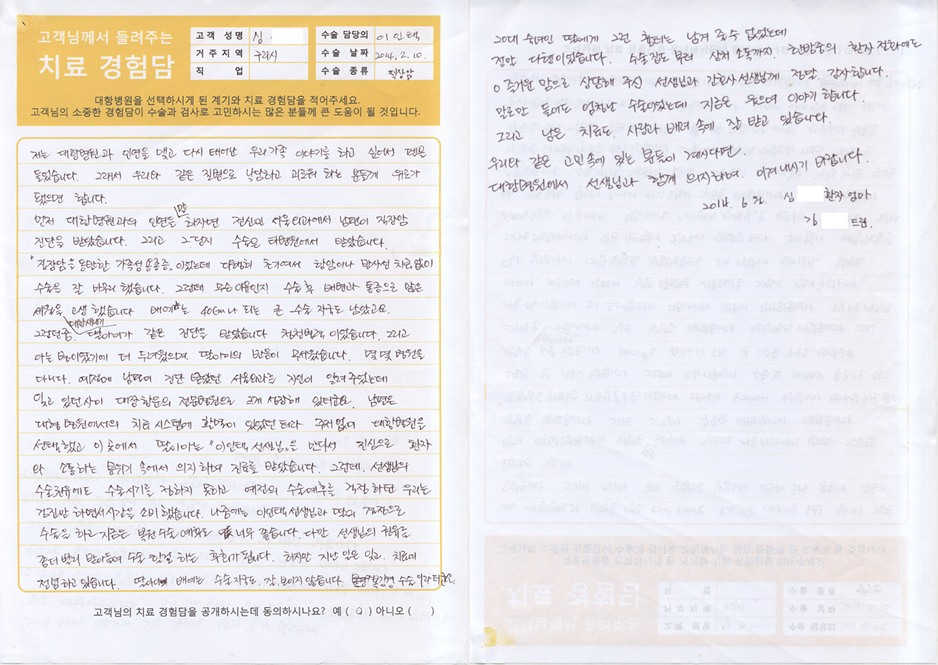 고객님께서 들려주는
치료 경험담
고객 성명 심
수술 담당의 이인택
거주 지역 구리시
수술 날짜 2014. 2. 10.
직 업
수술 종류 직장암
대항병원을 선택하시게 된 계기와 치료 경험담을 적어주세요.
고객님의 소중한 경험담이 수술과 검사로 고민하시는 많은 분들께 큰 도움이 될 것입니다.
저는 대항병원과 인연을 맺고 다시 태어난 우리가족 이야기를 하고 싶어서 펜을
들었습니다. 그래서 우리와 같은 질환으로 낙담하고 괴로워 하는 분들께 위로가
됐으면 합니다.
먼저 대항병원과의 인연을 말하자면 전신인 서울외과에서 남편이 직장암
진단을 받았습니다. 그리고 그 당시 수술은 타병원에서 받았습니다.
직장암을 동반한 가족성용종증이었는데 다행히 초기여서 항암이나 방사선 치료없이
수술을 잘 마무리 했습니다. 그런데 무슨 이유인지 수술 후 배변과 통증으로 많은
세월을 고생 했습니다 배에는 40cm나 되는 큰 수술 자국도 남았고요.
그런데 딸아이가 같은 진단을 받았습니다 청천벽력 이었습니다. 그리고
아는 병이었기에 더 두려웠으며 딸아이의 반응이 무서웠습니다. 몇몇 병원을
다니다. 예전에 남편이 진단 받았던 서울외과를 지인이 알려 주었는데
잊고 있던사이 대장항문의 전문병원으로 크게 성장해 있더군요. 남편은
대형병원에서의 치료 시스템에 황당이 있었던 터라 주저없이 대항병원을
선택했고 이 곳에서 딸아이는 "이인택 선생님"을 만나서 진심으로 환자
와 소통하는 분위기 속에서 의지하며 진료를 받았습니다. 그런데 선생님의
수술권유에도 수술시기를 정하지 못하고 예전의 수술예후를 걱정 하던 우리는
검진만 하면서 시간을 소비했습니다. 나중에는 이인택선생님과 딸의 결정으로
수술을 하고 지금은 복원수술 예후도 너무 좋습니다. 다만 선생님의 권유를
좀더 빨리 받아들여 수술 안한걸 하는 후회가 됩니다. 하지만 지난 일은 잊고 치료에
전념하고 있습니다. 딸아이 배에는 수술자국도 잘 보이지 않습니다. 복강경 수술 이라 더군요.
고객님의 치료 경험담을 공개하시는데 동의하시나요? 예 ( O ) 아니오 ( )
20대 숙녀인 딸에게 그런 흉터는 남겨 줄수 없었는데
정말 다행이었습니다. 수술집도 부터 상처 소독까지. 한밤중의 환자 전화에도
즐거운 맘으로 상담해 주신 선생님과 간호사 선생님께 정말 감사합니다.
말로만 들어도 엄청난 수술이었는데 지금은 웃으며 이야기 합니다.
그리고 남은 치료도 사랑과 배려 속에 잘 받고 있습니다.
우리와 같은 고민속에 있는 분들이 계시다면
대항병원에서 선생님과 함께 의지하며 이겨내시기 바랍니다.
2014. 6 월 심 환자 엄마
김 드림.